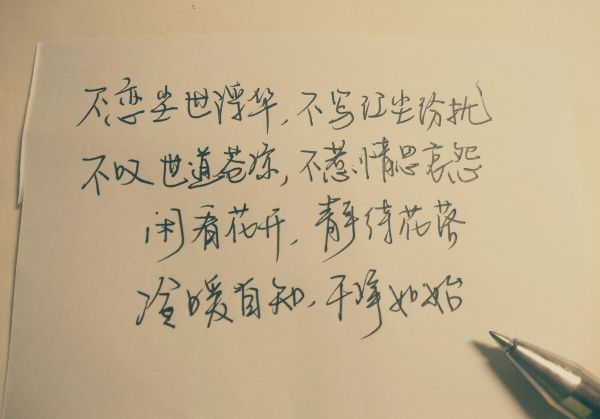 不恋尘世浮华,不写红尘纷扰
不叹世道苍凉,不惹情思哀怨
闲看花开,静待花落
冷暖自知,干净如始